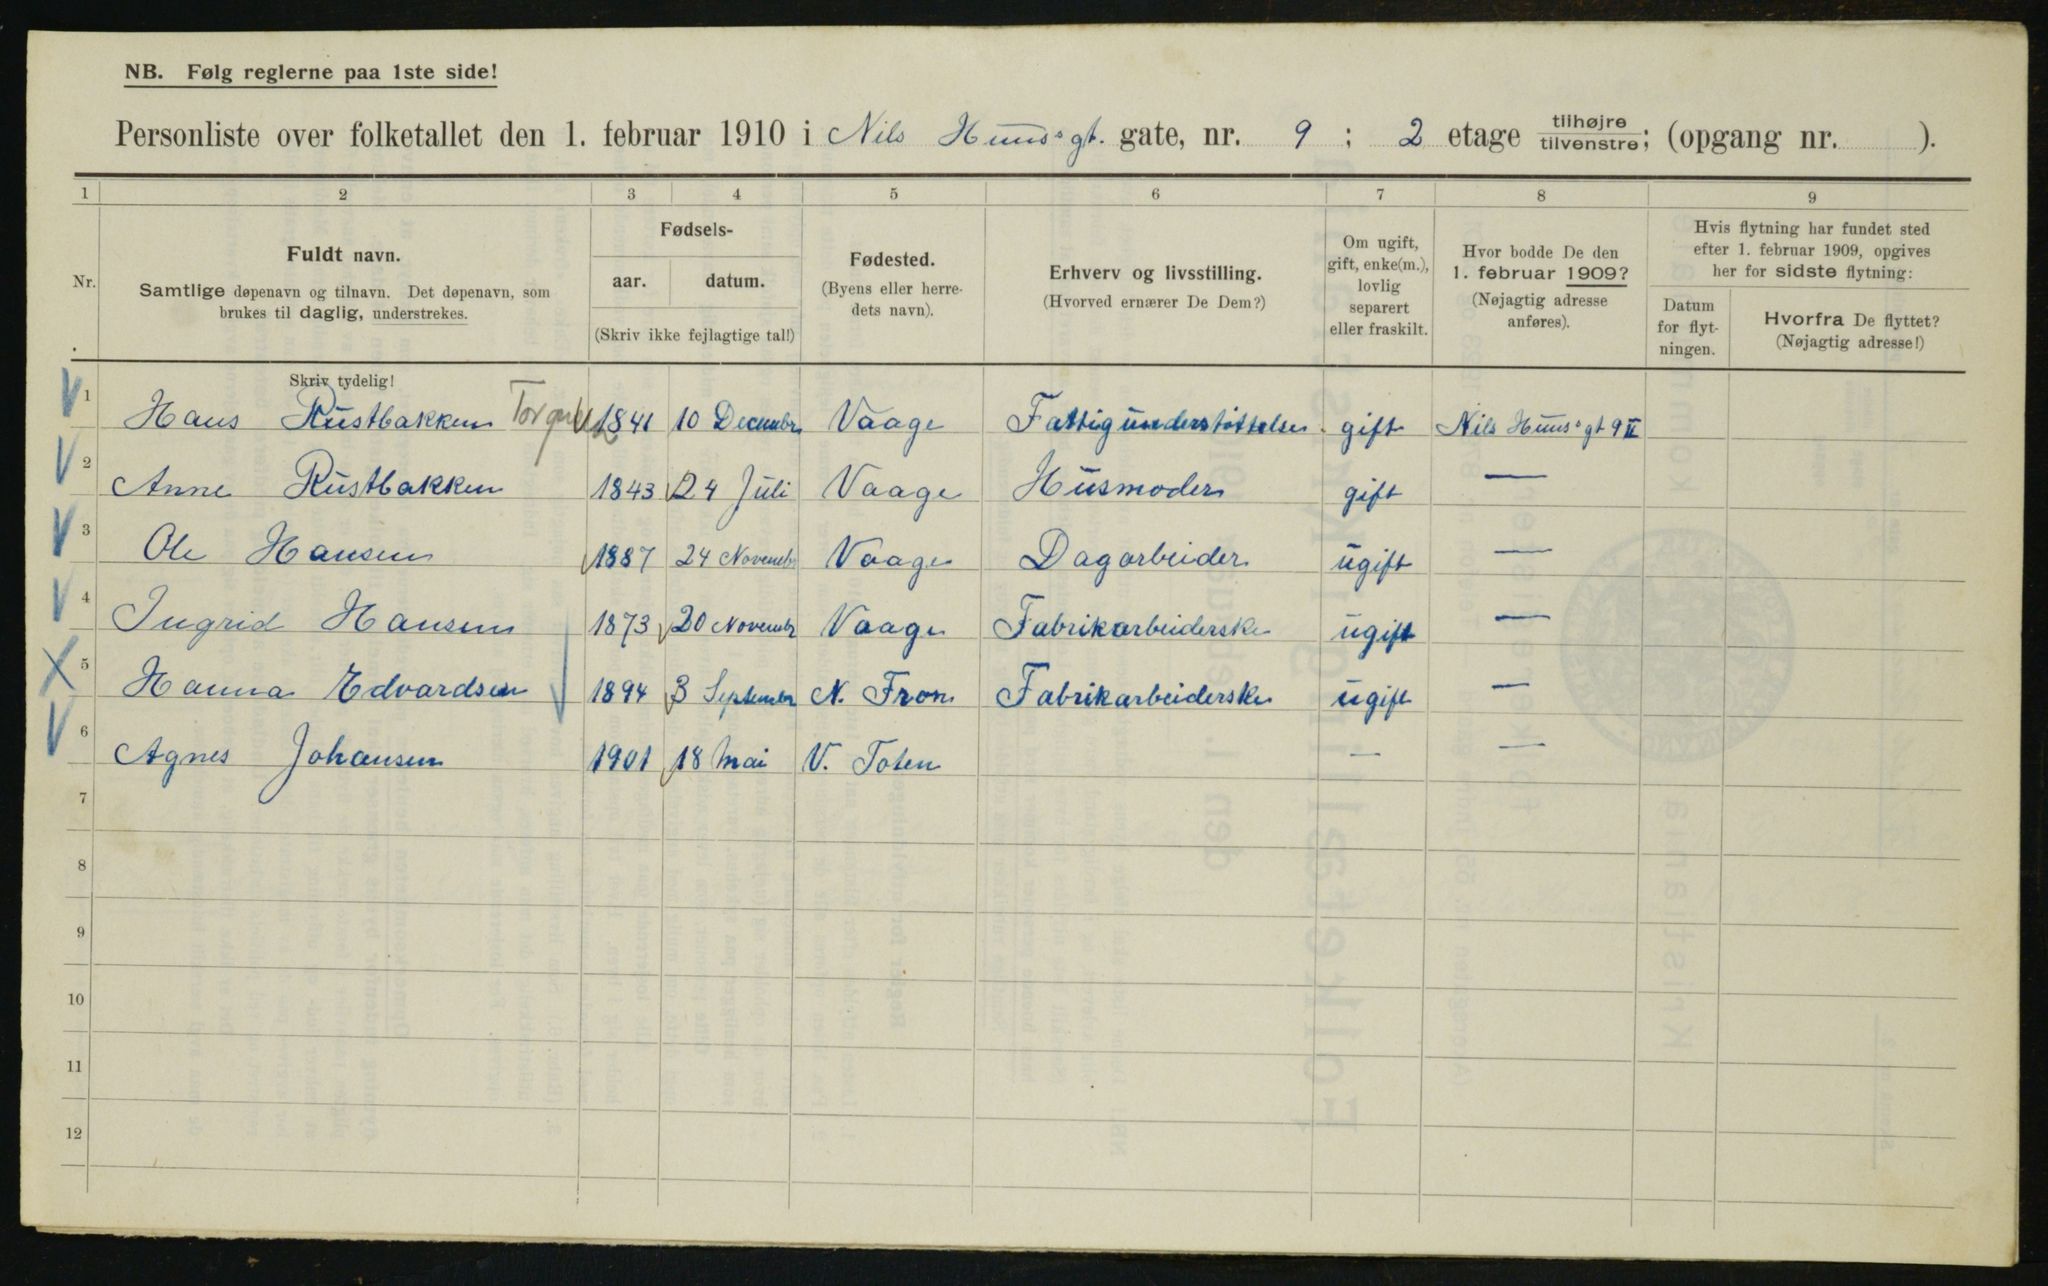 NB. Følg reglerne paa 1ste side!
Personliste over folketallet den 1. februar 1910 i Nils Huus's gt. gate, nr. 9 ; 2 etage tilhøjre tilvenstre; (opgang nr. ).
1 2 3 4 5 6 7 8 9
Nr.
Fuldt navn.
Samtlige døpenavn og tilnavn. Det døpenavn, som
brukes til daglig, understrekes.
Skriv tydelig!
Fødsels-
aar. datum.
(Skriv ikke fejlagtige tal!)
Fødested.
(Byens eller herre-
dets navn).
Erhverv og livsstilling.
(Hvorved ernærer De Dem?)
Om ugift,
gift, enke(m.),
lovlig
separert
eller fraskilt.
Hvor bodde De den
1. februar 1909?
(Nøjagtig adresse
anføres).
Hvis flytning har fundet sted
efter 1. februar 1909, opgives
her for sidste flytning:
Datum
for flyt-
ningen.
Hvorfra De flyttet?
(Nøjagtig adresse!)
1 Hans Rustbakken 1841 10 Decembr Vaage Fattigunderstøttelse gift Nils Huus's gt 9 II
2 Anne Rustbakken 1843 24 Juli Vaage Husmoder gift —
3 Ole Hansen 1887 24 Novembr Vaage Dagarbeider ugift —
4 Ingrid Hansen 1873 20 Novembr Vaage Fabrikarbeiderske ugift —
5 Hanna Edvardsen 1894 3 Septembr N. Fron Fabrikarbeiderske ugift —
6 Agnes Johansen 1901 18 Mai V. Toten — —
7
8
9
10
11
12